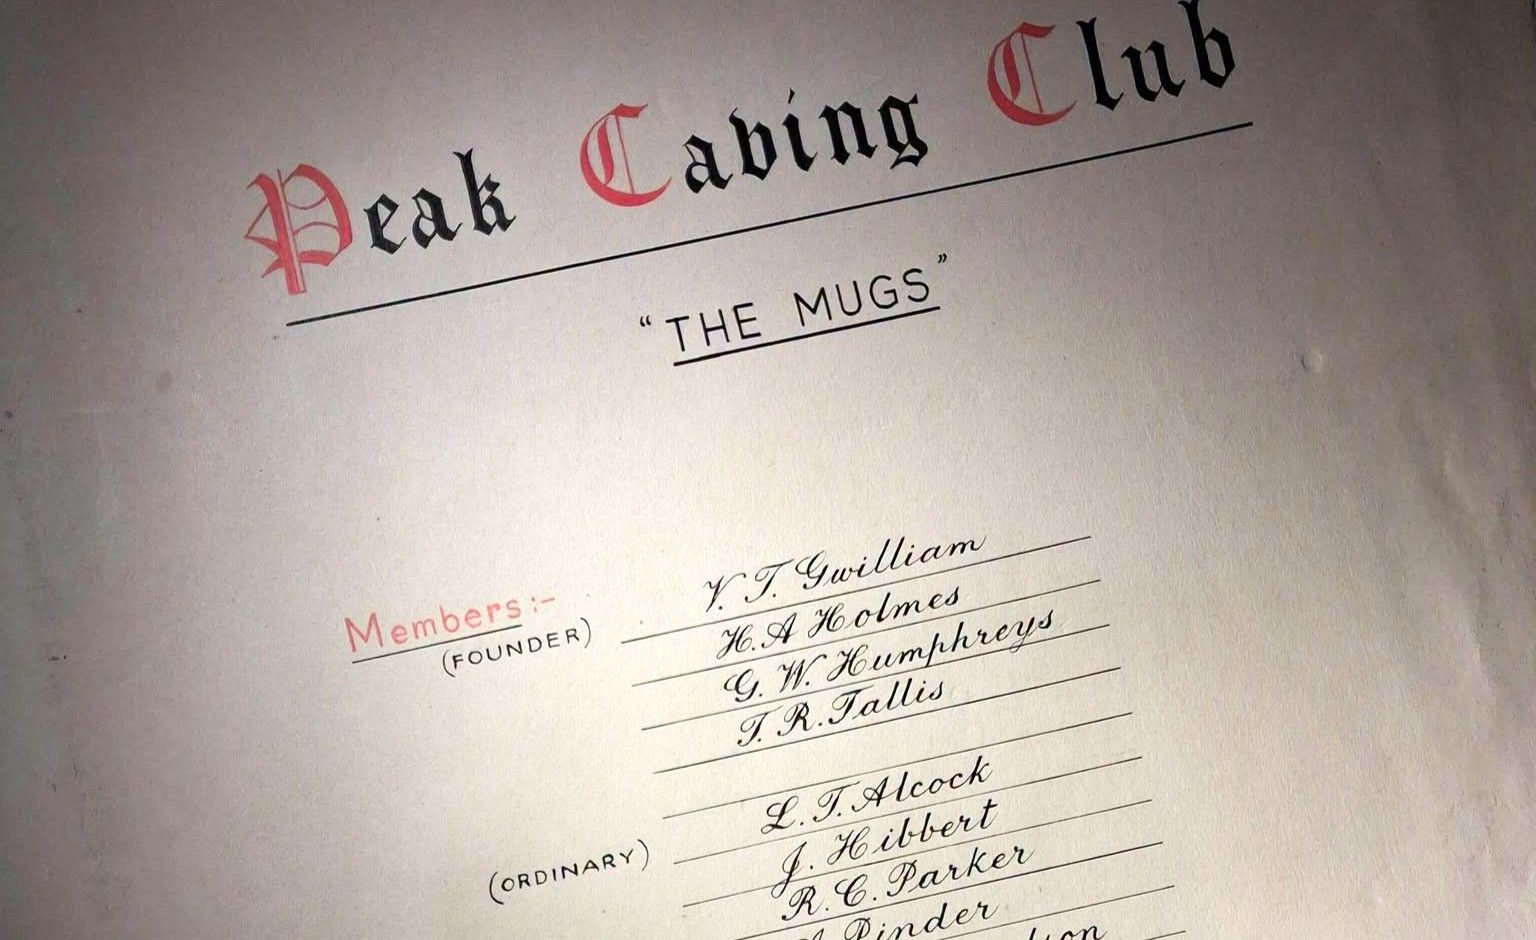 Peak Caving Club
"THE MUGS"
Members:-
(FOUNDER)
V. T. Gwilliam
H. A Holmes
G. W. Humphreys
T. R. Tallis
(ORDINARY)
L. T. Alcock
J. Hibbert
R. C. Parker
Pinder